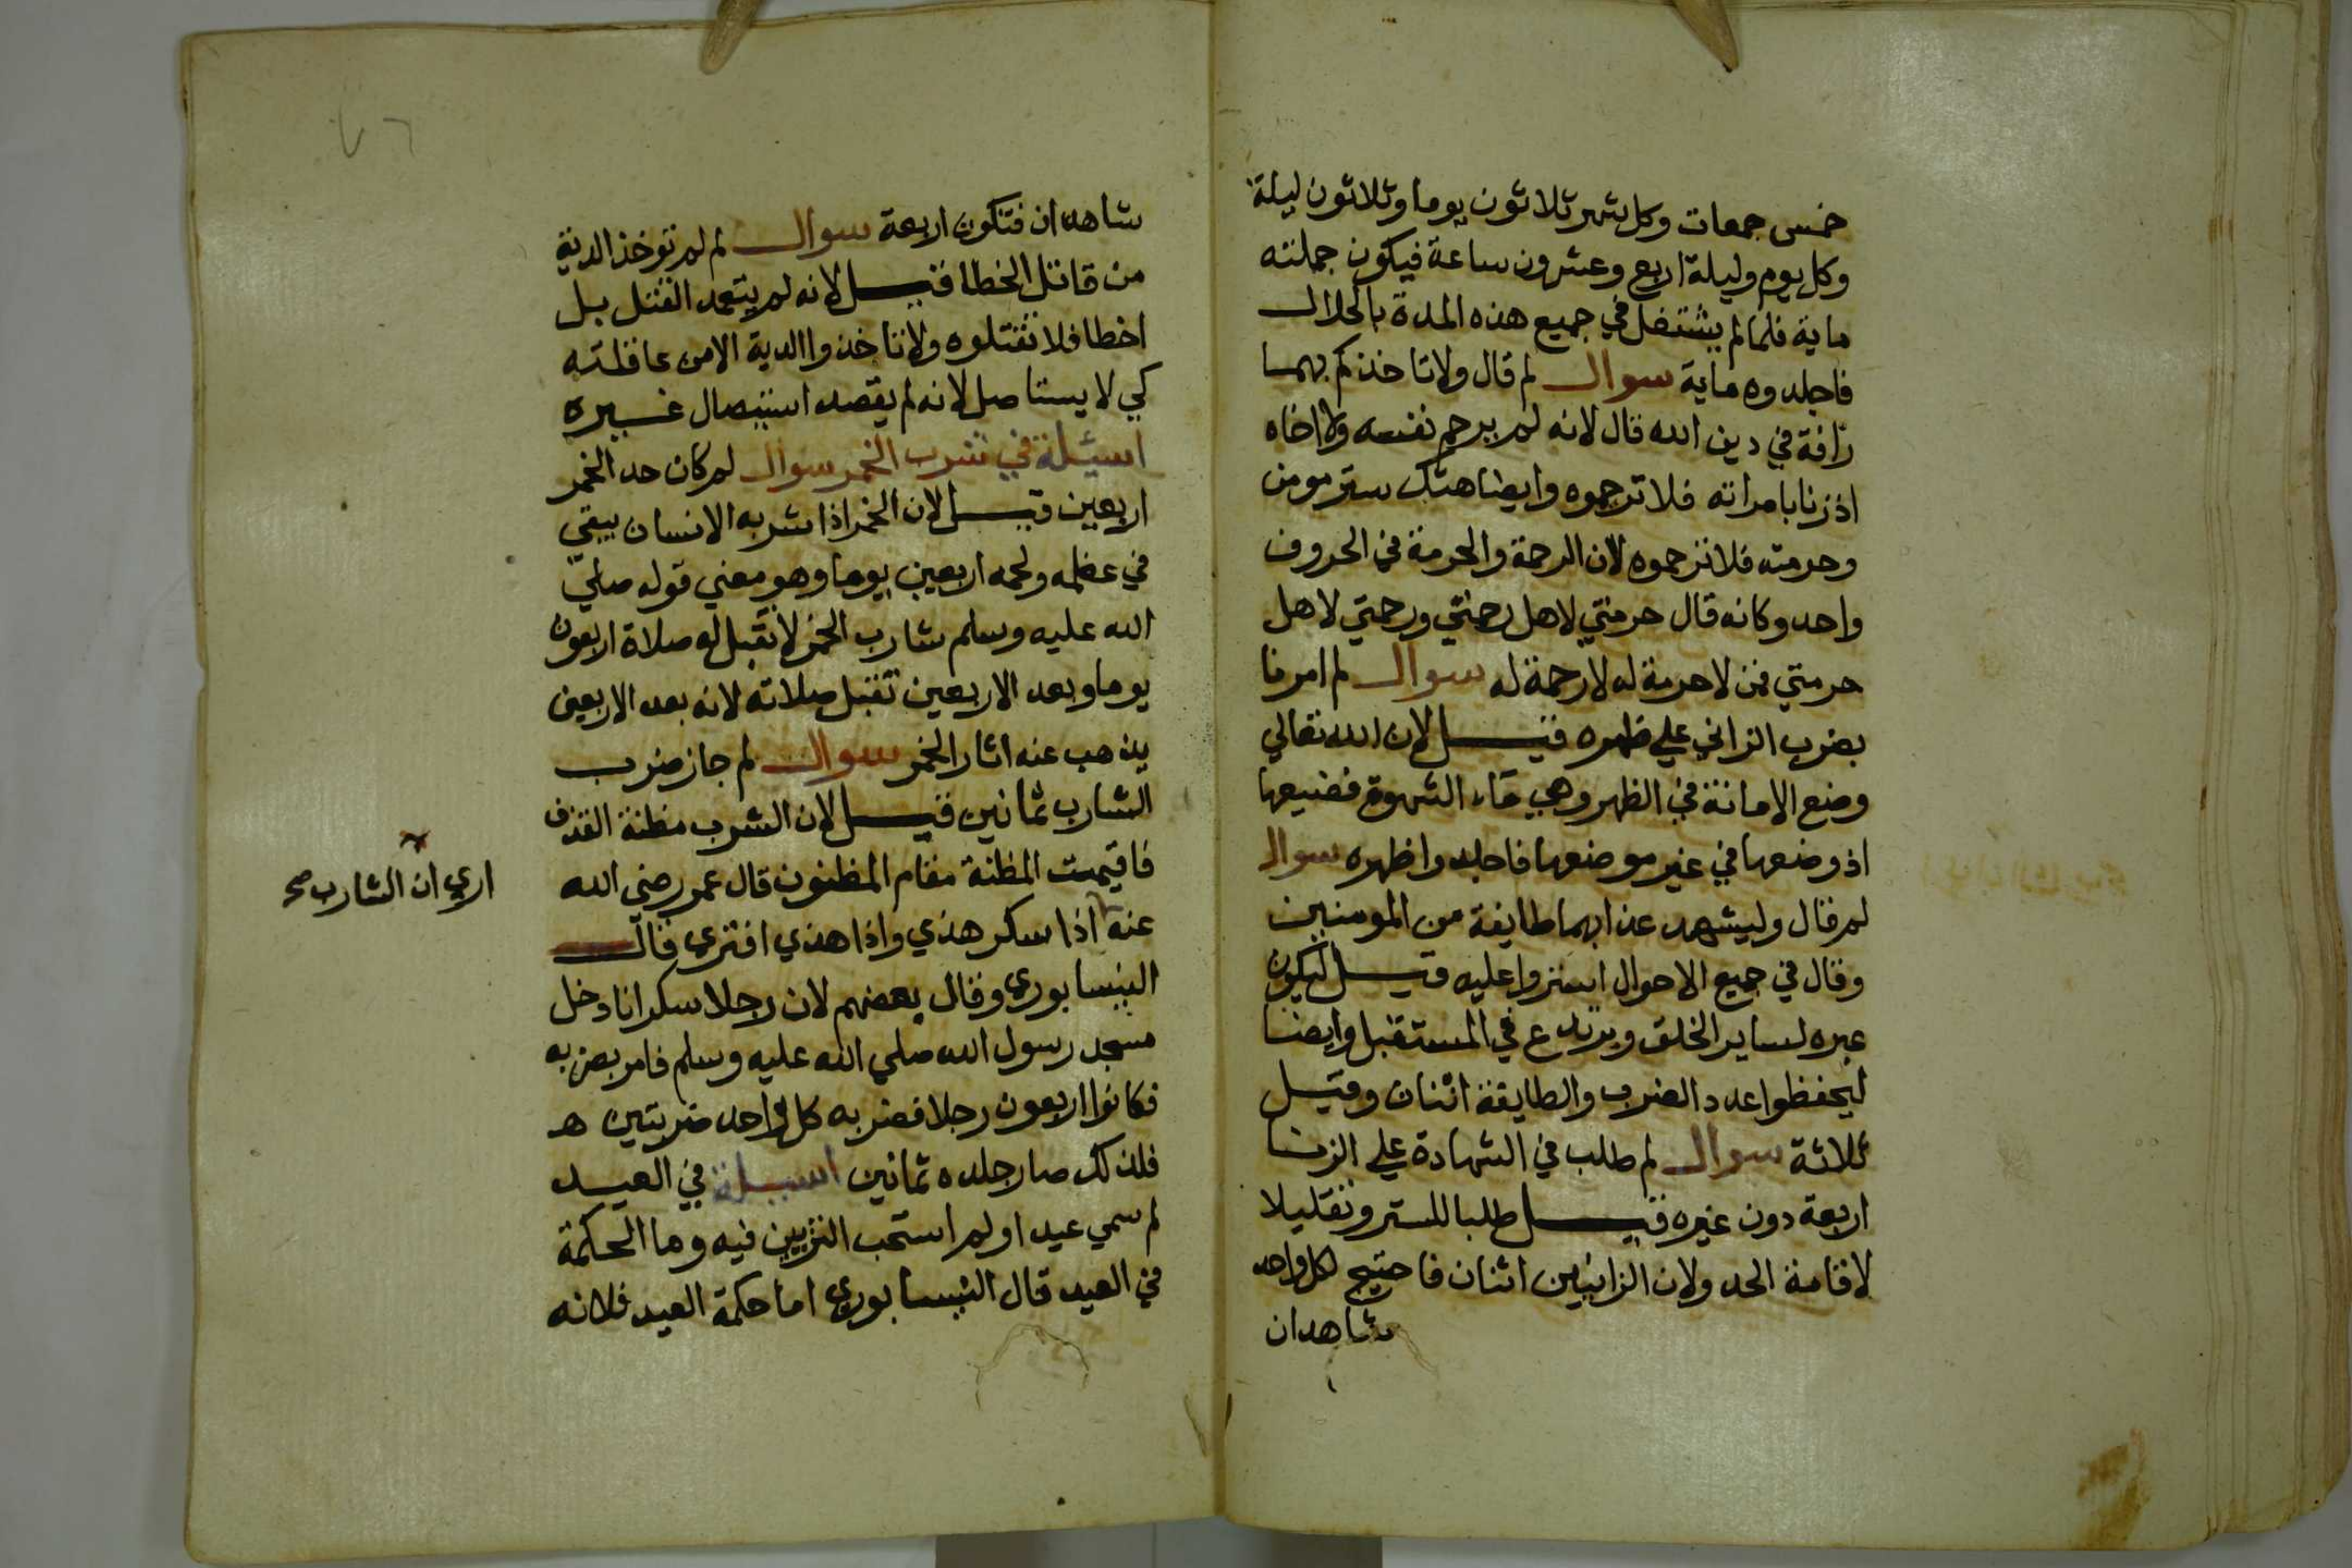 خمس جمعات وكل شهر ثلاثون يوما وثلاثون ليلة
وكل يوم وليلة اربع وعشرون ساعة فيكون جملته
ماية فلما لم يشتغل في جميع هذه المدة بالحلال
فاجلدوه ماية سوال لم قال ولا تاخذكم بهما
رافة في دين الله قال لانه لم يرحم نفسه ولا اخاه
اذ زنا بامراته فلا ترحموه وايضا هتك ستر مومن
وحرمته فلا ترحموه لان الرحمة والحرمة في الحروف
واحد وكانه قال حرمتي لاهل رحمتي ورحمتي لاهل
حرمتي فمن لا حرمة له لا رحمة له سوال لم امرنا
بضرب الزاني علي ظهره قيل لان الله تعالي
وضع الامانة في الظهر وهي ماء الشهوة فضيعها
اذ وضعها في غير موضعها فاجلدوا ظهره سوال
لم قال وليشهد عذابهما طايفة من المومنين
وقال في جميع الاحوال استروا عليه قيل ليكون
عبره لساير الخلق ويرتدع في المستقبل وايضا
ليحفظوا عدد الضرب والطايفة اثنان وقيل
ثلاثة سوال لم طلب في الشهادة علي الزنا
اربعة دون غيره قيل طلبا للستر وتقليلا
لاقامة الحد ولان الزانيين اثنان فاحتيج لكل واحد
شاهدان
٧٦
شاهدان فتكون اربعة سوال لم لم توخذ الدية
من قاتل الخطا قيل لانه لم يتعمد القتل بل
اخطا فلا تقتلوه ولا تاخذوا الدية الا من عاقلته
كي لا يستاصل لانه لم يقصد استيصال غيره
اسئلة في شرب الخمر سوال لم كان حد الخمر
اربعين قيل لان الخمر اذا شربه الانسان يبقي
في عظمه ولحمه اربعين يوما وهو معني قوله صلي
الله عليه وسلم شارب الخمر لا تقبل له صلاة اربعون
يوما وبعد الاربعين تقبل صلاته لانه بعد الاربعين
يذهب عنه اثار الخمر سوال لم جاز ضرب
الشارب ثمانين قيل لان الشرب مظنة القذف
فاقيمت المظنة مقام المظنون قال عمر رضي الله
عنه اذا سكر هذي واذا هذي افتري قال
اري ان الشارب صح
النيسابوري وقال بعضهم لان رجلا سكرانا دخل
مسجد رسول الله صلي الله عليه وسلم فامر بضربه
فكانوا اربعون رجلا فضربه كل واحد ضربتين ه
فلذلك صار جلده ثمانين اسيلة في العيد
لم سمي عيدا ولم استحب التزيين فيه وما الحكمة
في العيد قال النيسابوري اما حكمة العيد فلانه